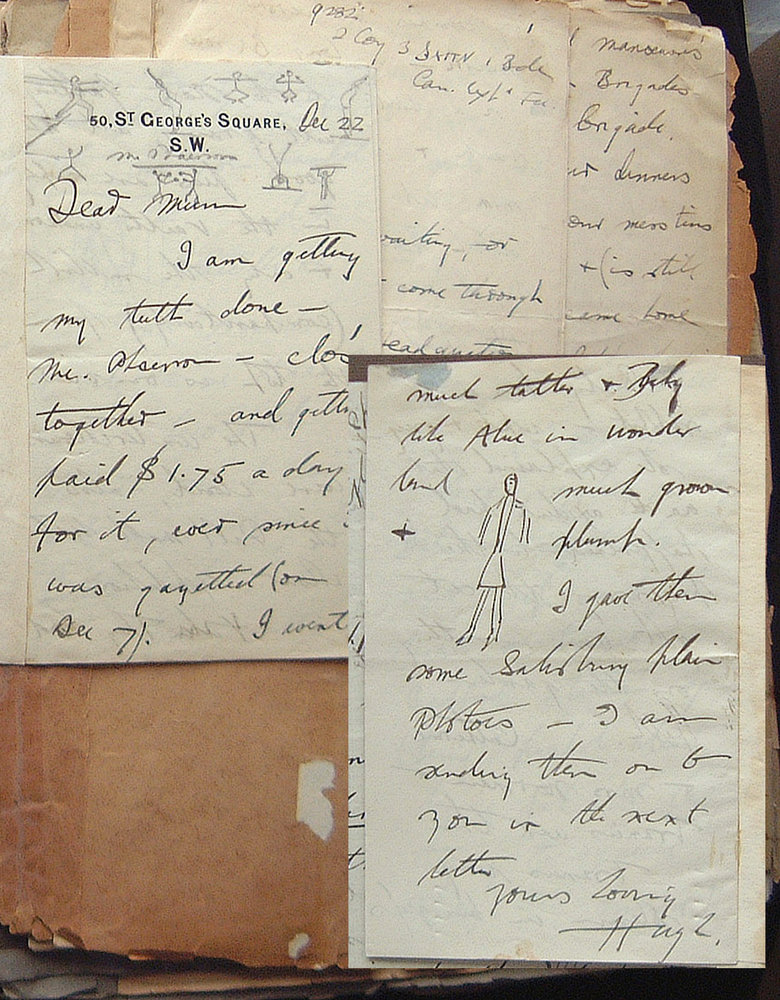 9282
2 Coy 3 Battn 1 Bde
Can. Exp. Fce
manoeuvres
Brigades
brigade.
dinners
our mess tins
+ (is still
came home
waiting, or
come through
headquarters
50, ST GEORGE'S SQUARE, Dec 22
S.W.
Dead Mum
I am getting
my teeth done –
Mr. – clos
together – and gett
paid $1.75 a day
for it, ever since
was gazetted (on
Dec 7). I went
much tatter + Baby
like Alice in wonder
land much grown
+ plump.
I gave them
some Salisbury plain
Photoes – I am
sending them on to
you in the next
letter
yours loving
Hugh.